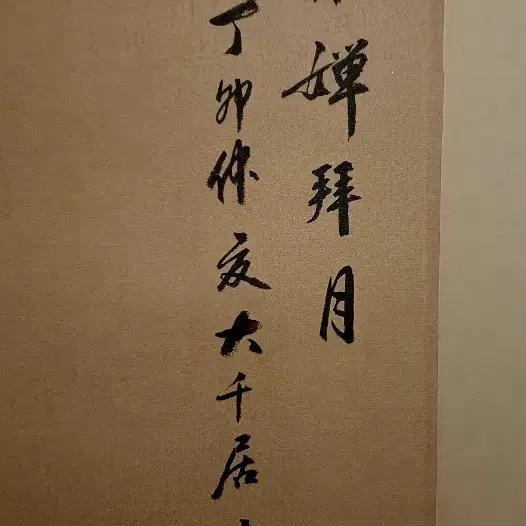 嬋拜月
丁卯仲夏大千居